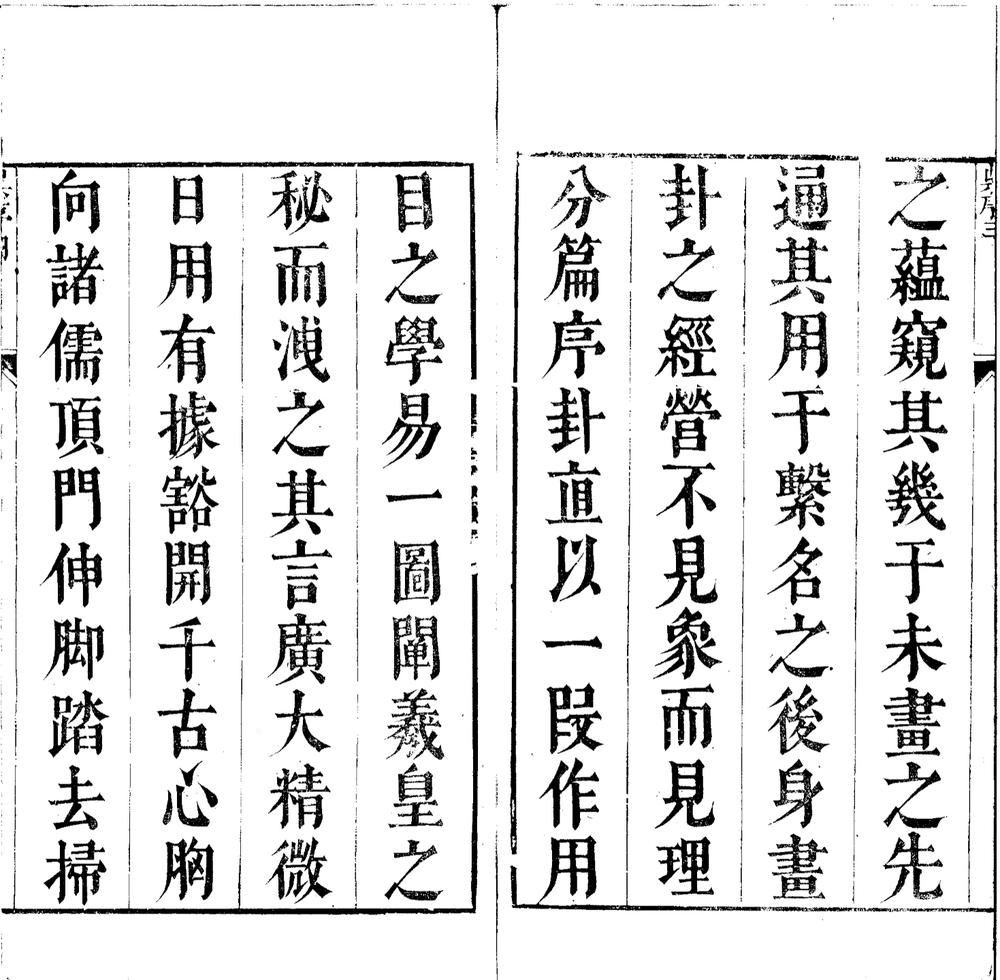 之蘊窺其幾于未畫之先
逼其用于繫名之後身畫
卦之經營不見象而見理
分篇序卦直以一段作用
目之學易一圖闡羲皇之
秘而洩之其言廣大精微
日用有據豁開千古心胸
向諸儒頂門伸脚踏去掃